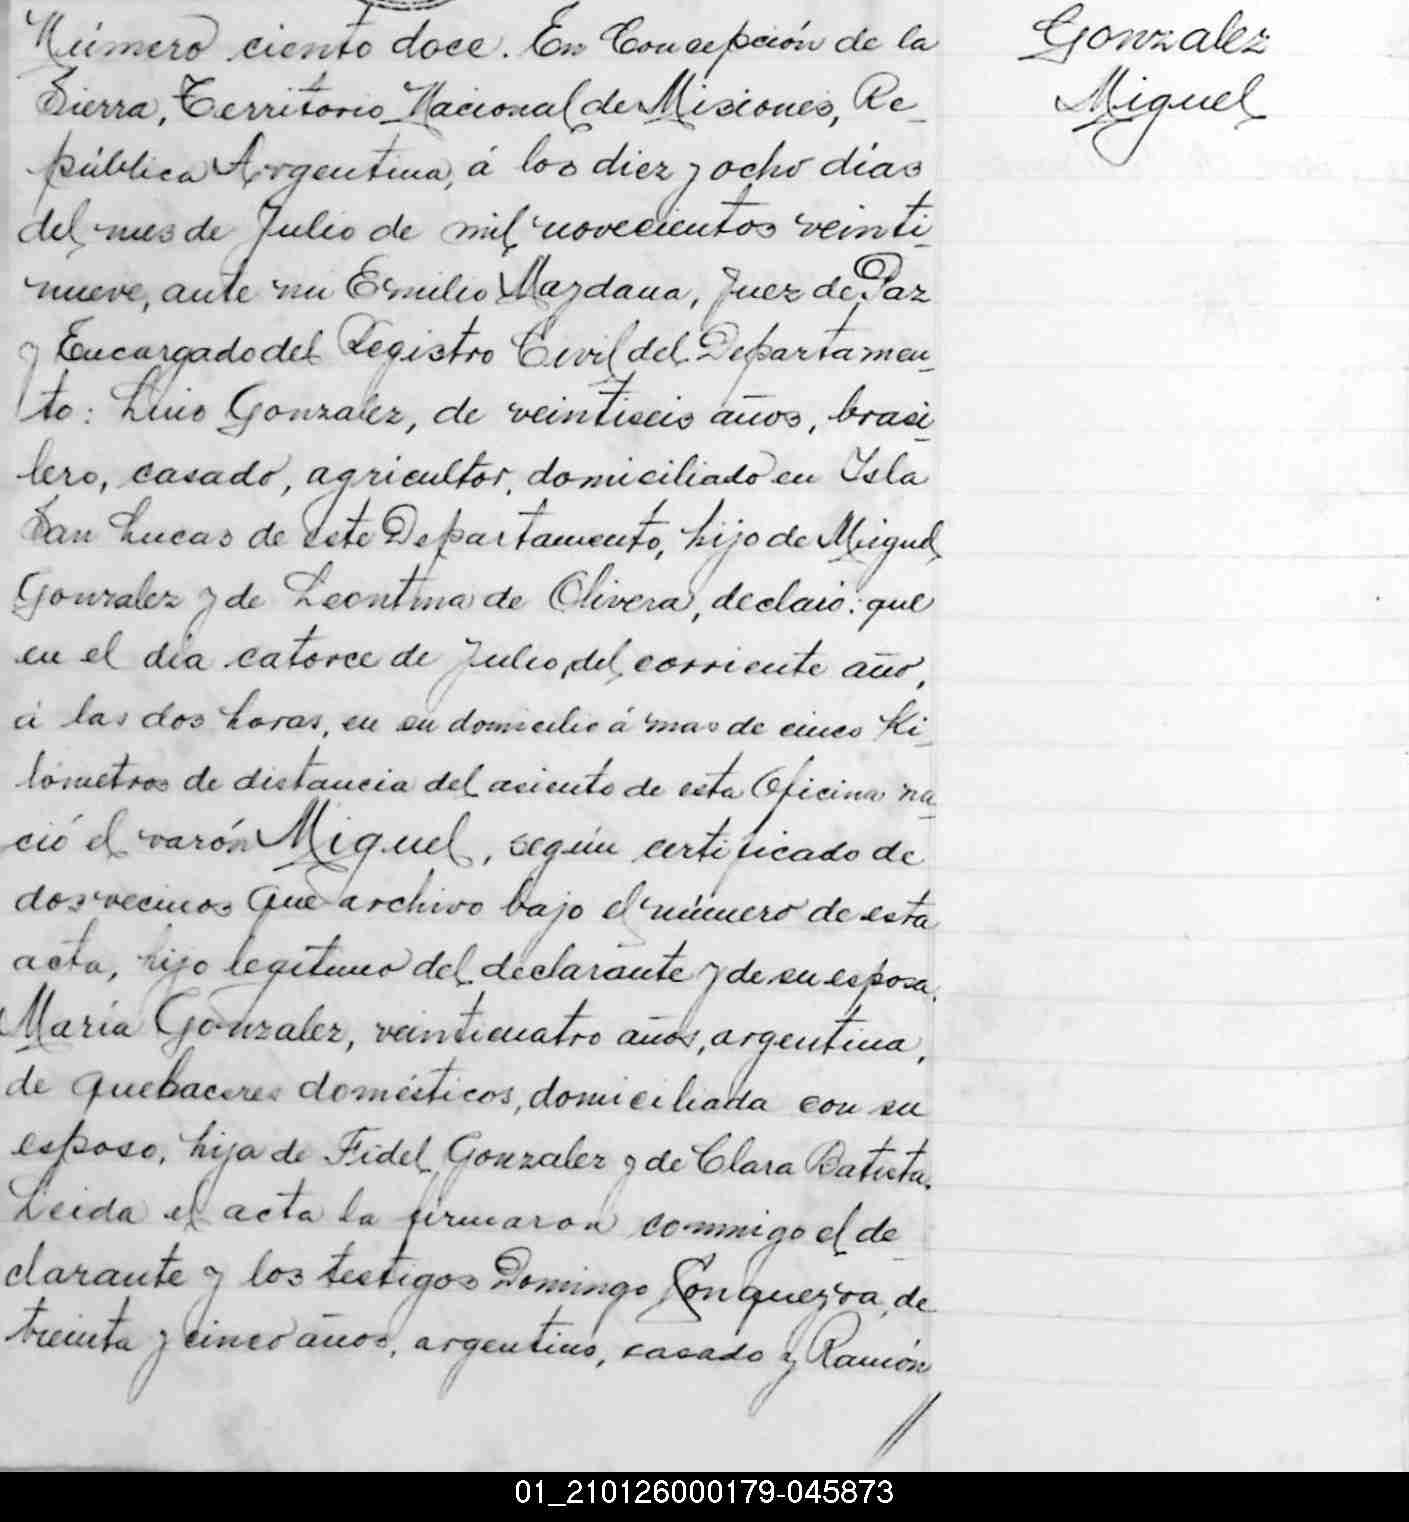 Número ciento doce. En Concepción de la
Sierra, Territorio Nacional de Misiones, Re-
pública Argentina, á los diez y ocho días
del mes de Julio de mil novecientos veinti-
nueve, ante mi Emilio Maydana, Juez de Paz
y Encargado del Registro Civil del Departamen-
to: Luis Gonzalez, de veintiseis años, brasi-
lero, casado, agricultor, domiciliado en Isla
San Lucas de este Departamento, hijo de Miguel
Gonzalez y de Leontina de Olivera, declaró: que
en el día catorce de Julio del corriente año,
á las dos horas, en su domicilio á mas de cinco Ki-
lómetros de distancia del asiento de esta Oficina na-
ció el varón Miguel, según certificado de
dos vecinos que archivo bajo el número de esta
acta, hijo legítimo del declarante y de su esposa
María Gonzalez, veinticuatro años, argentina,
de quehaceres domésticos, domiciliada con su
esposo, hija de Fidel Gonzalez y de Clara Batista.
Leida el acta la firmaron conmigo el de-
clarante y los testigos Domingo de
treinta y cinco años, argentino, casado y Ramón
Gonzalez
Miguel
01_210126000179-045873